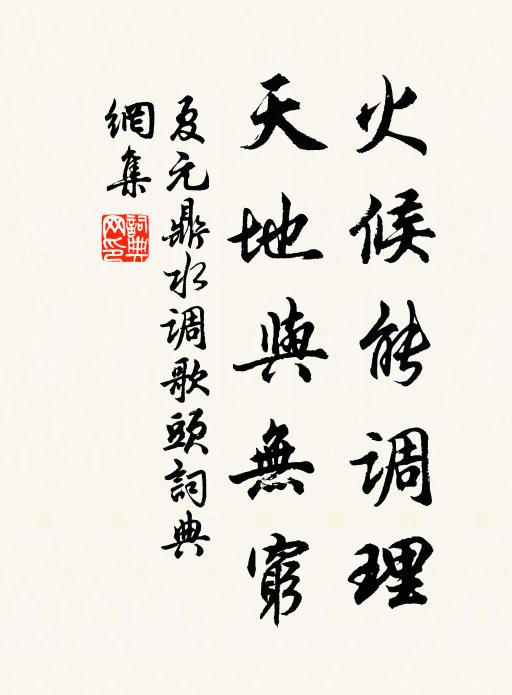 火候能调理
天地與無窮
夏元鼎水调歌頭詞典
網集
詞典网印